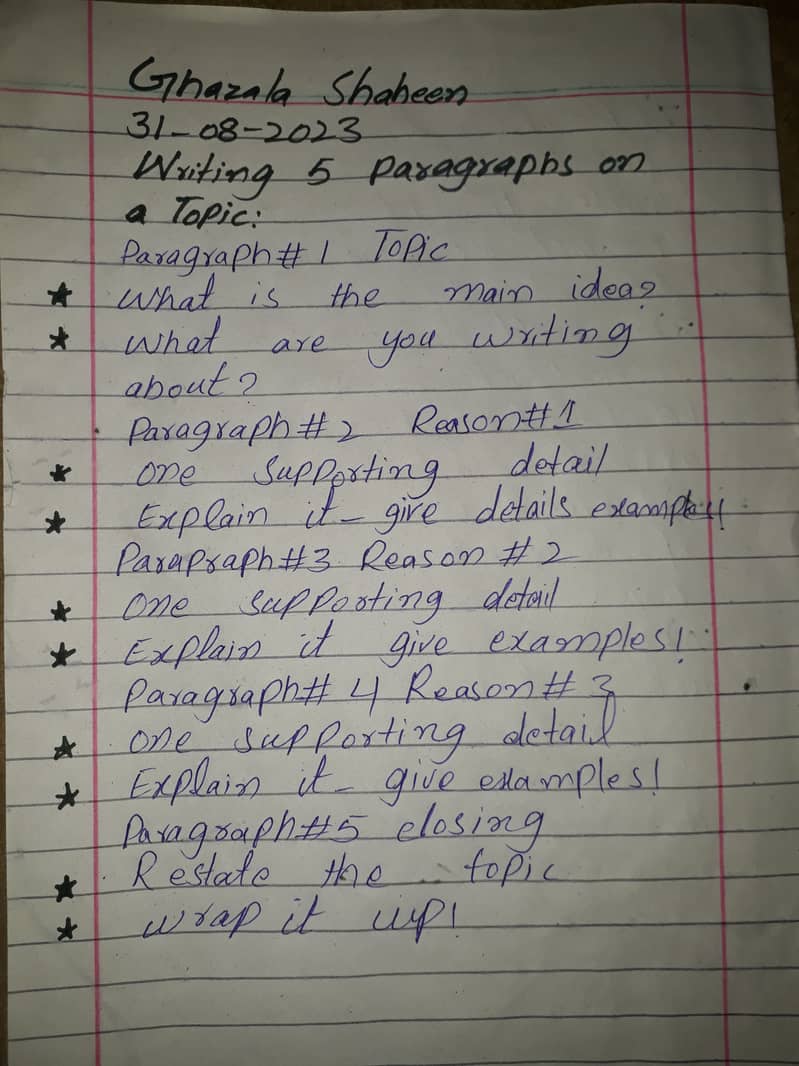 Ghazala Shaheen
31-08-2023
Writing 5 paragraphs on
a Topic:
Paragraph # 1 Topic
★ What is the main idea?
★ What are you writing
about?
Paragraph # 2 Reason # 1
★ One supporting detail
★ Explain it - give details examples!!
Parapraph # 3 Reason # 2
★ One supporting detail
★ Explain it give examples!
Paragraph # 4 Reason # 3
★ One supporting detail
★ Explain it - give examples!
Paragraph # 5 closing
★ Restate the topic
★ wrap it up!